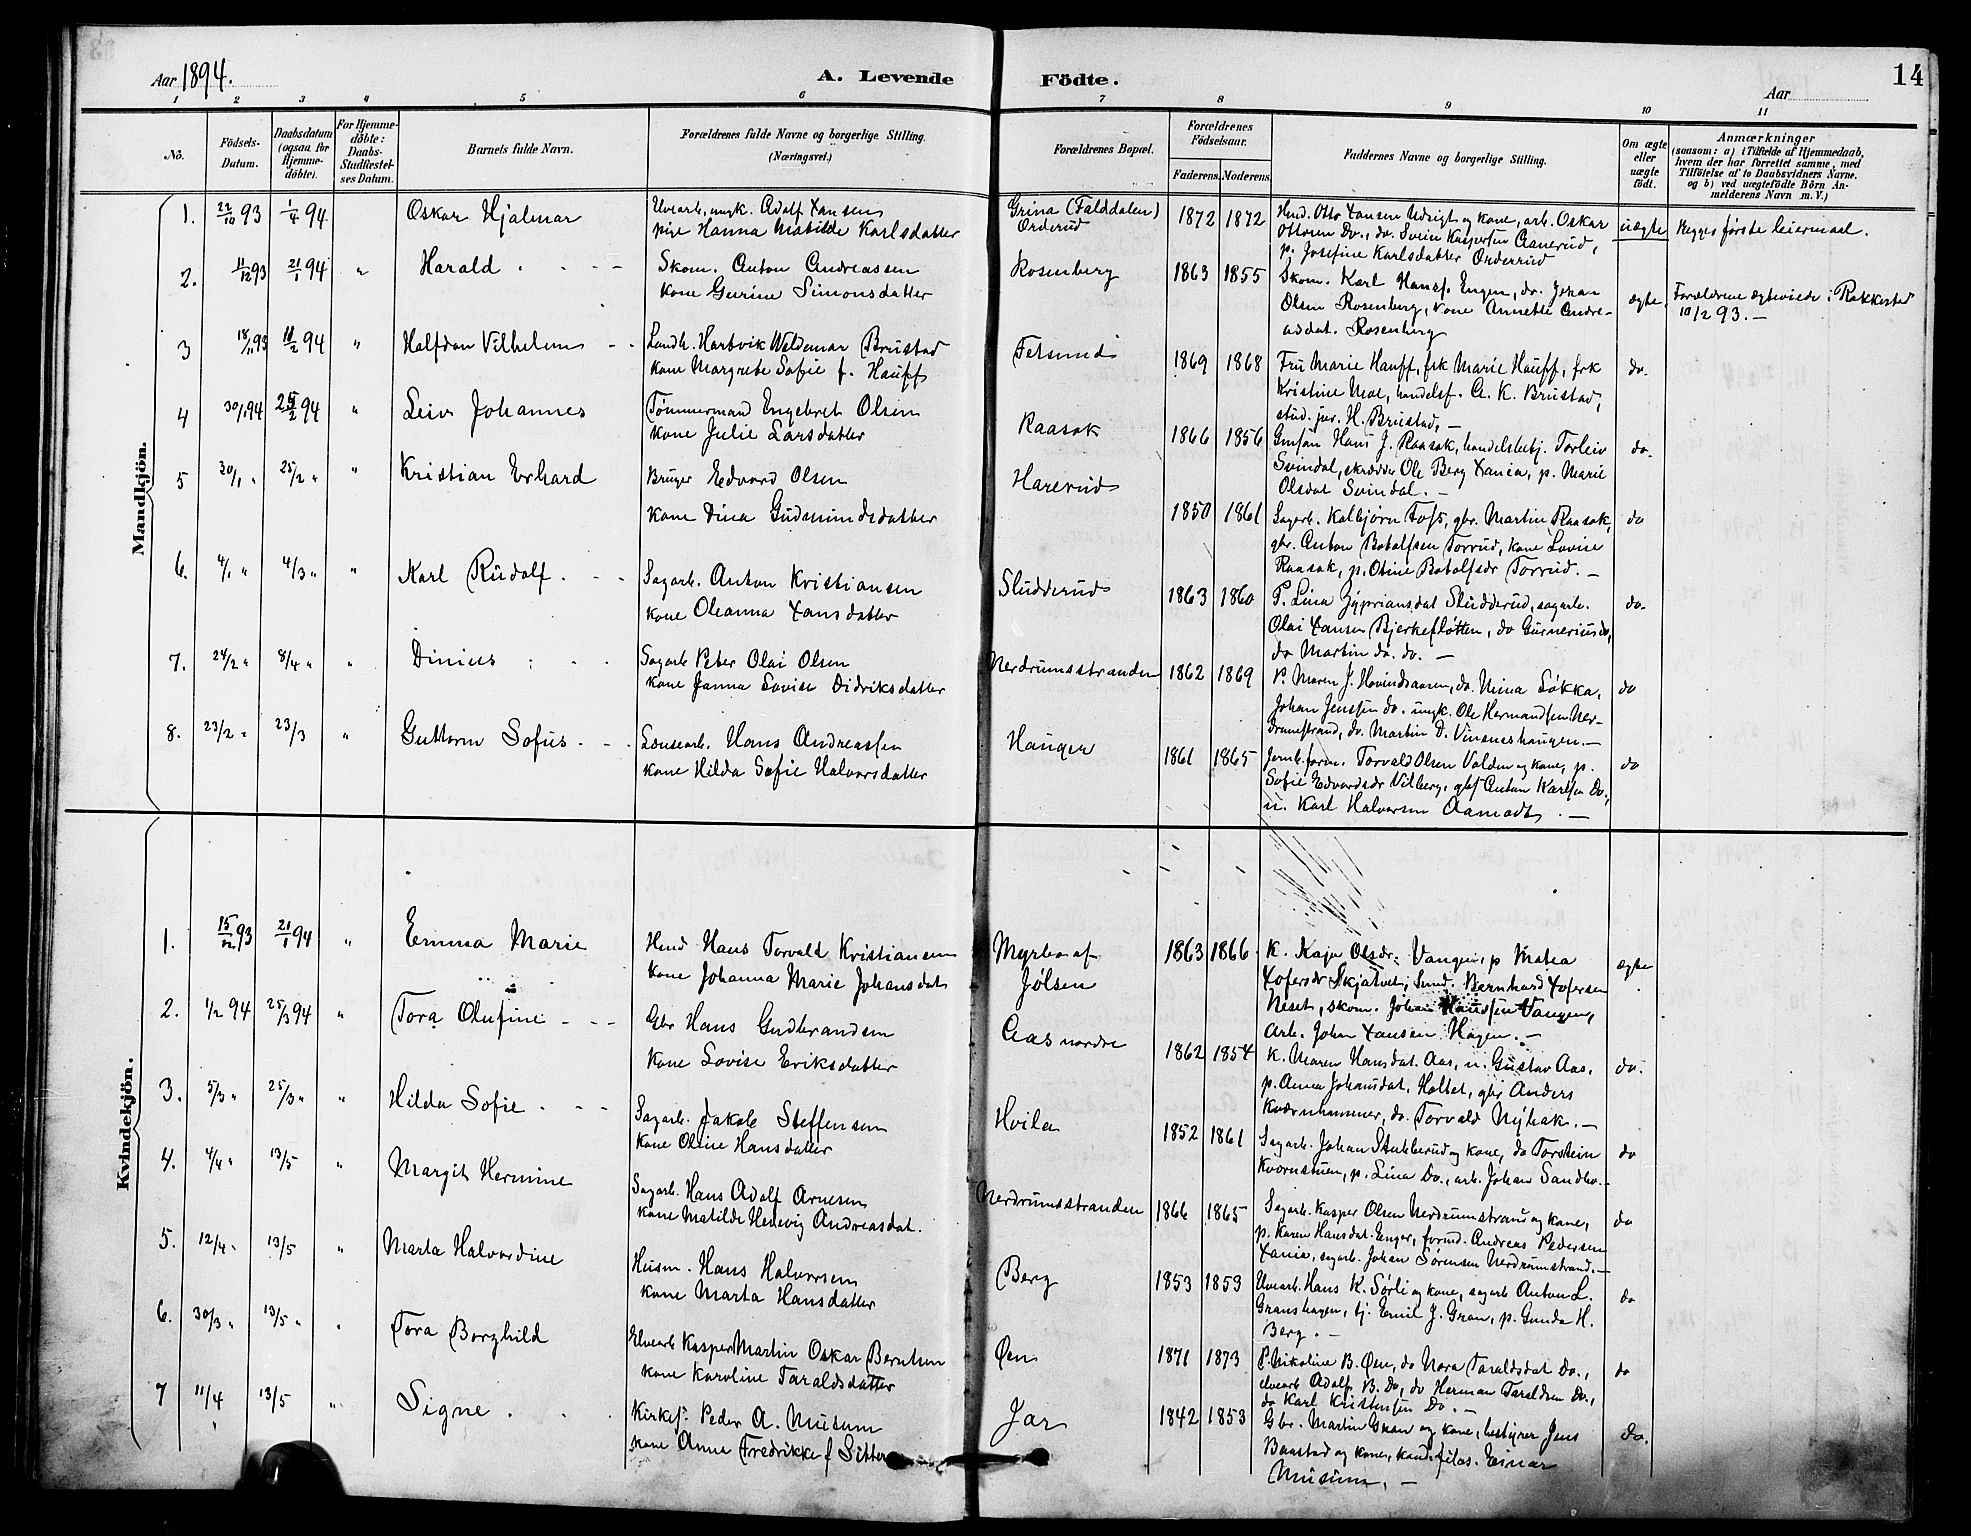 14
Aar 1894.
A. Levende Födte.
Aar
1 2 3 4 5 6 7 8 9 10 11
No.
Födsels-Datum.
Daabsdatum (ogsaa for Hjemme-döbte).
For Hjemme-döbte: Daabs-Stadfæstel-ses Datum.
Barnets fulde Navn.
Forældrenes fulde Navne og borgerlige Stilling.
(Næringsvei.)
Forældrenes Bopæl.
Forældrenes Födselsaar.
Faderens. Moderens.
Faddernes Navne og borgerlige Stilling.
Om ægte eller uægte födt.
Anmærkninger
(saasom: a) i Tilfælde af Hjemmedaab,
hvem der har forrettet samme, med
Tilföielse af to Daabsvidners Navne.
og b) ved uægtefödte Börn An-
melderens Navn m. V.)
Mandkjön.
1. 22/10 93 1/4 94 Oskar Hjalmar Elvearb., ungk. Adolf Hansen Grina (Falddalen) 1872 1872
pige Hanna Matilde Karlsdatter Orderud
Husm. Otto Hansen Udsigt og kone, arb. Oskar
Ottosen do., do. Svein Kaspersen Aanerud,
p. Josefine Karlsdatter Orderud
uægte Begges første leiermaal.
2. 11/12 93 21/1 94 " Harald Skom. Anton Andreassen Rosenberg 1863 1855
kone Gurine Simonsdatter
Skom. Karl Hansf. Engen, do. Johan
Olsen Rosenberg, kone Annette Andre-
asdat. Rosenberg
ægte. Forældrene ægteviede i Rakkestad
10/2 93. —
3 18/11 93 11/2 94 " Halfdan Vilhelm Landh. Hartvik Waldemar Brustad Fetsund 1869 1868
kone Margrete Sofie f. Hauff
Fru Marie Hauff, frk Marie Hauff, frk
Kristine Moe, handelsf. A. K. Brustad,
stud. jur. H. Brustad. —
do.
4 30/1 94 25/2 94 " Leiv Johannes Tømmermand Engebret Olsen Raasok 1866 1856
kone Julie Larsdatter
Hans J. Raasok, handelsbetj. Torleiv
Svindal, skrædder Ole Berg Xania, p. Marie
Olsdat Svindal. —
do.
5 30/1 " 25/2 " " Kristian Erhard Bruger Edvard Olsen Harerud
kone Dina Gudmundsdatter 1850 1861
Sagarb. Kolbjørn Foss, gbr. Martin Raasok,
gbr. Anton Botolfsen Torrud, kone Lovise
Raasok, p. Otine Botolfsdr Torrud. —
do
6. 4/1 " 4/3 " " Karl Rudolf Sagarb. Anton Kristiansen Sludderud 1863 1860
kone Oleanna Hansdatter
P. Lina Zypriansdat Sludderud, sagarb.
Olai Hansen Bjerkefløtten, do Gunerius do,
do Martin do. do. —
do.
7. 24/2 " 8/4 " " Dinius Sagarb Peter Olai Olsen Nerdrumsstranden 1862 1869
kone Janna Lovise Didriksdatter
P. Maren J. Hovindsaasen, do. Nina Løkka,
Johan Jenssen do. ungk. Ole Hermandsen Ner-
drumstrand, do. Martin D. Vinsneshaugen. —
do
8. 23/2 " 23/3 " Guttorm Sofus Lænsearb. Hans Andreassen Hauger 1861 1865
kone Hilda Sofie Halvorsdatter
Jernb.form. Torvald Olsen Volden og kone, p.
Sofie Edvardsdr Vilberg, gbs Anton Karlsen do.,
u. Karl Halvorsen Aamodt. —
do
Kvindekjön.
1. 15/12 93 21/1 94 " Emma Marie Husm Hans Torvald Kristiansen Myrbo af 1863 1866
kone Johanna Marie Johansdat Jølsen
K. Kaja Olsdr: Vangen, p Matea
Xofersdr Skjatvet; Smed. Bernhard Xofersen
Neset, skom. Johan Hansen Vangen,
Arb. Johan Hansen Hagen. —
ægte
2. 1/2 94 25/3 94 " Tora Olufine Gbr Hans Gudbrandsen Aas nordre 1862 1854
kone Lovise Eriksdatter
K. Maren Hansdat. Aas, u. Gustav Aas,
p. Anna Johansdat. Holtet, gbr Anders
Kværnhammer, do. Torvald Nyhak. —
do.
3. 5/3 " 25/3 " " Hilda Sofie Sagarb. Jakob Steffensen Hvila 1852 1861
kone Oline Hansdatter
Sagarb. Johan Stubberud og kone, do Torstein
Kvernstuen, p. Lina do., arb. Johan Sandbo. —
do
4. 4/4 " 13/5 " Margit Hermine Sagarb. Hans Adolf Arnesen Nerdrumsstranden 1866 1865
kone Matilde Hedevig Andreasdat.
Sagarb. Kasper Olsen Nerdrumstrand og kone,
p. Karen Hansdat. Enger, formd. Andreas Pedersen
Xania, sagarb. Johan Sørensen Nerdrumstrand. —
do
5. 12/4 " 13/5 " Marta Halvordine Husm. Hans Halvorsen Berg 1853 1853
kone Marta Hansdatter
Elvearb. Hans K. Sørli og kone, sagarb Anton L.
Granshagen, tj. Emil J. Gran, p. Gunda H.
Berg. —
do
6. 30/3 " 13/5 " " Tora Borghild Elvearb Kasper Martin Oskar Berntsen Øen 1871 1873
kone Karoline Taraldsdatter
P. Nikoline B. Øen, do Nora Taraldsdat do.,
elvearb Adolf B. do, do Herman Taraldsen do.,
do Karl Kristensen do. —
do
7 11/4 13/5 " Signe Kirkes. Peder A. Musum Jar 1842 1853
kone Anna Fredrikke f Sitter
Gbr. Martin Gran og kone, bestyrer Jens
Baastad og kone, kand. filos. Einar
Musum. —
do.